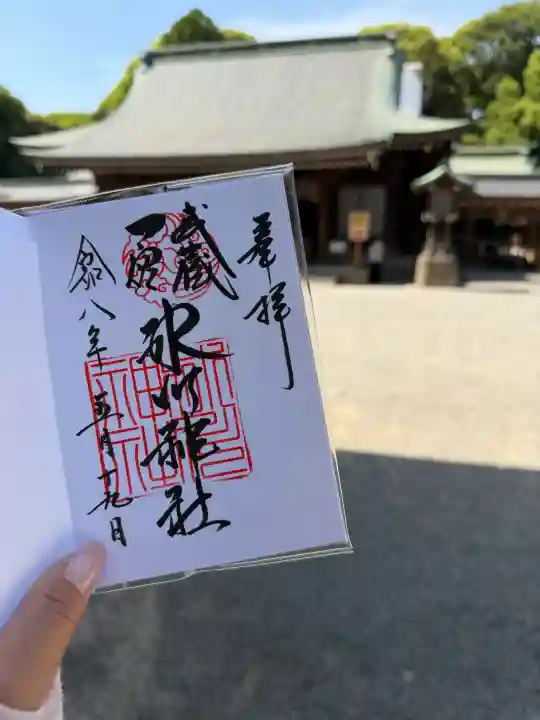 奉拝
武蔵
一宮
氷川神社
令和八年五月十九日